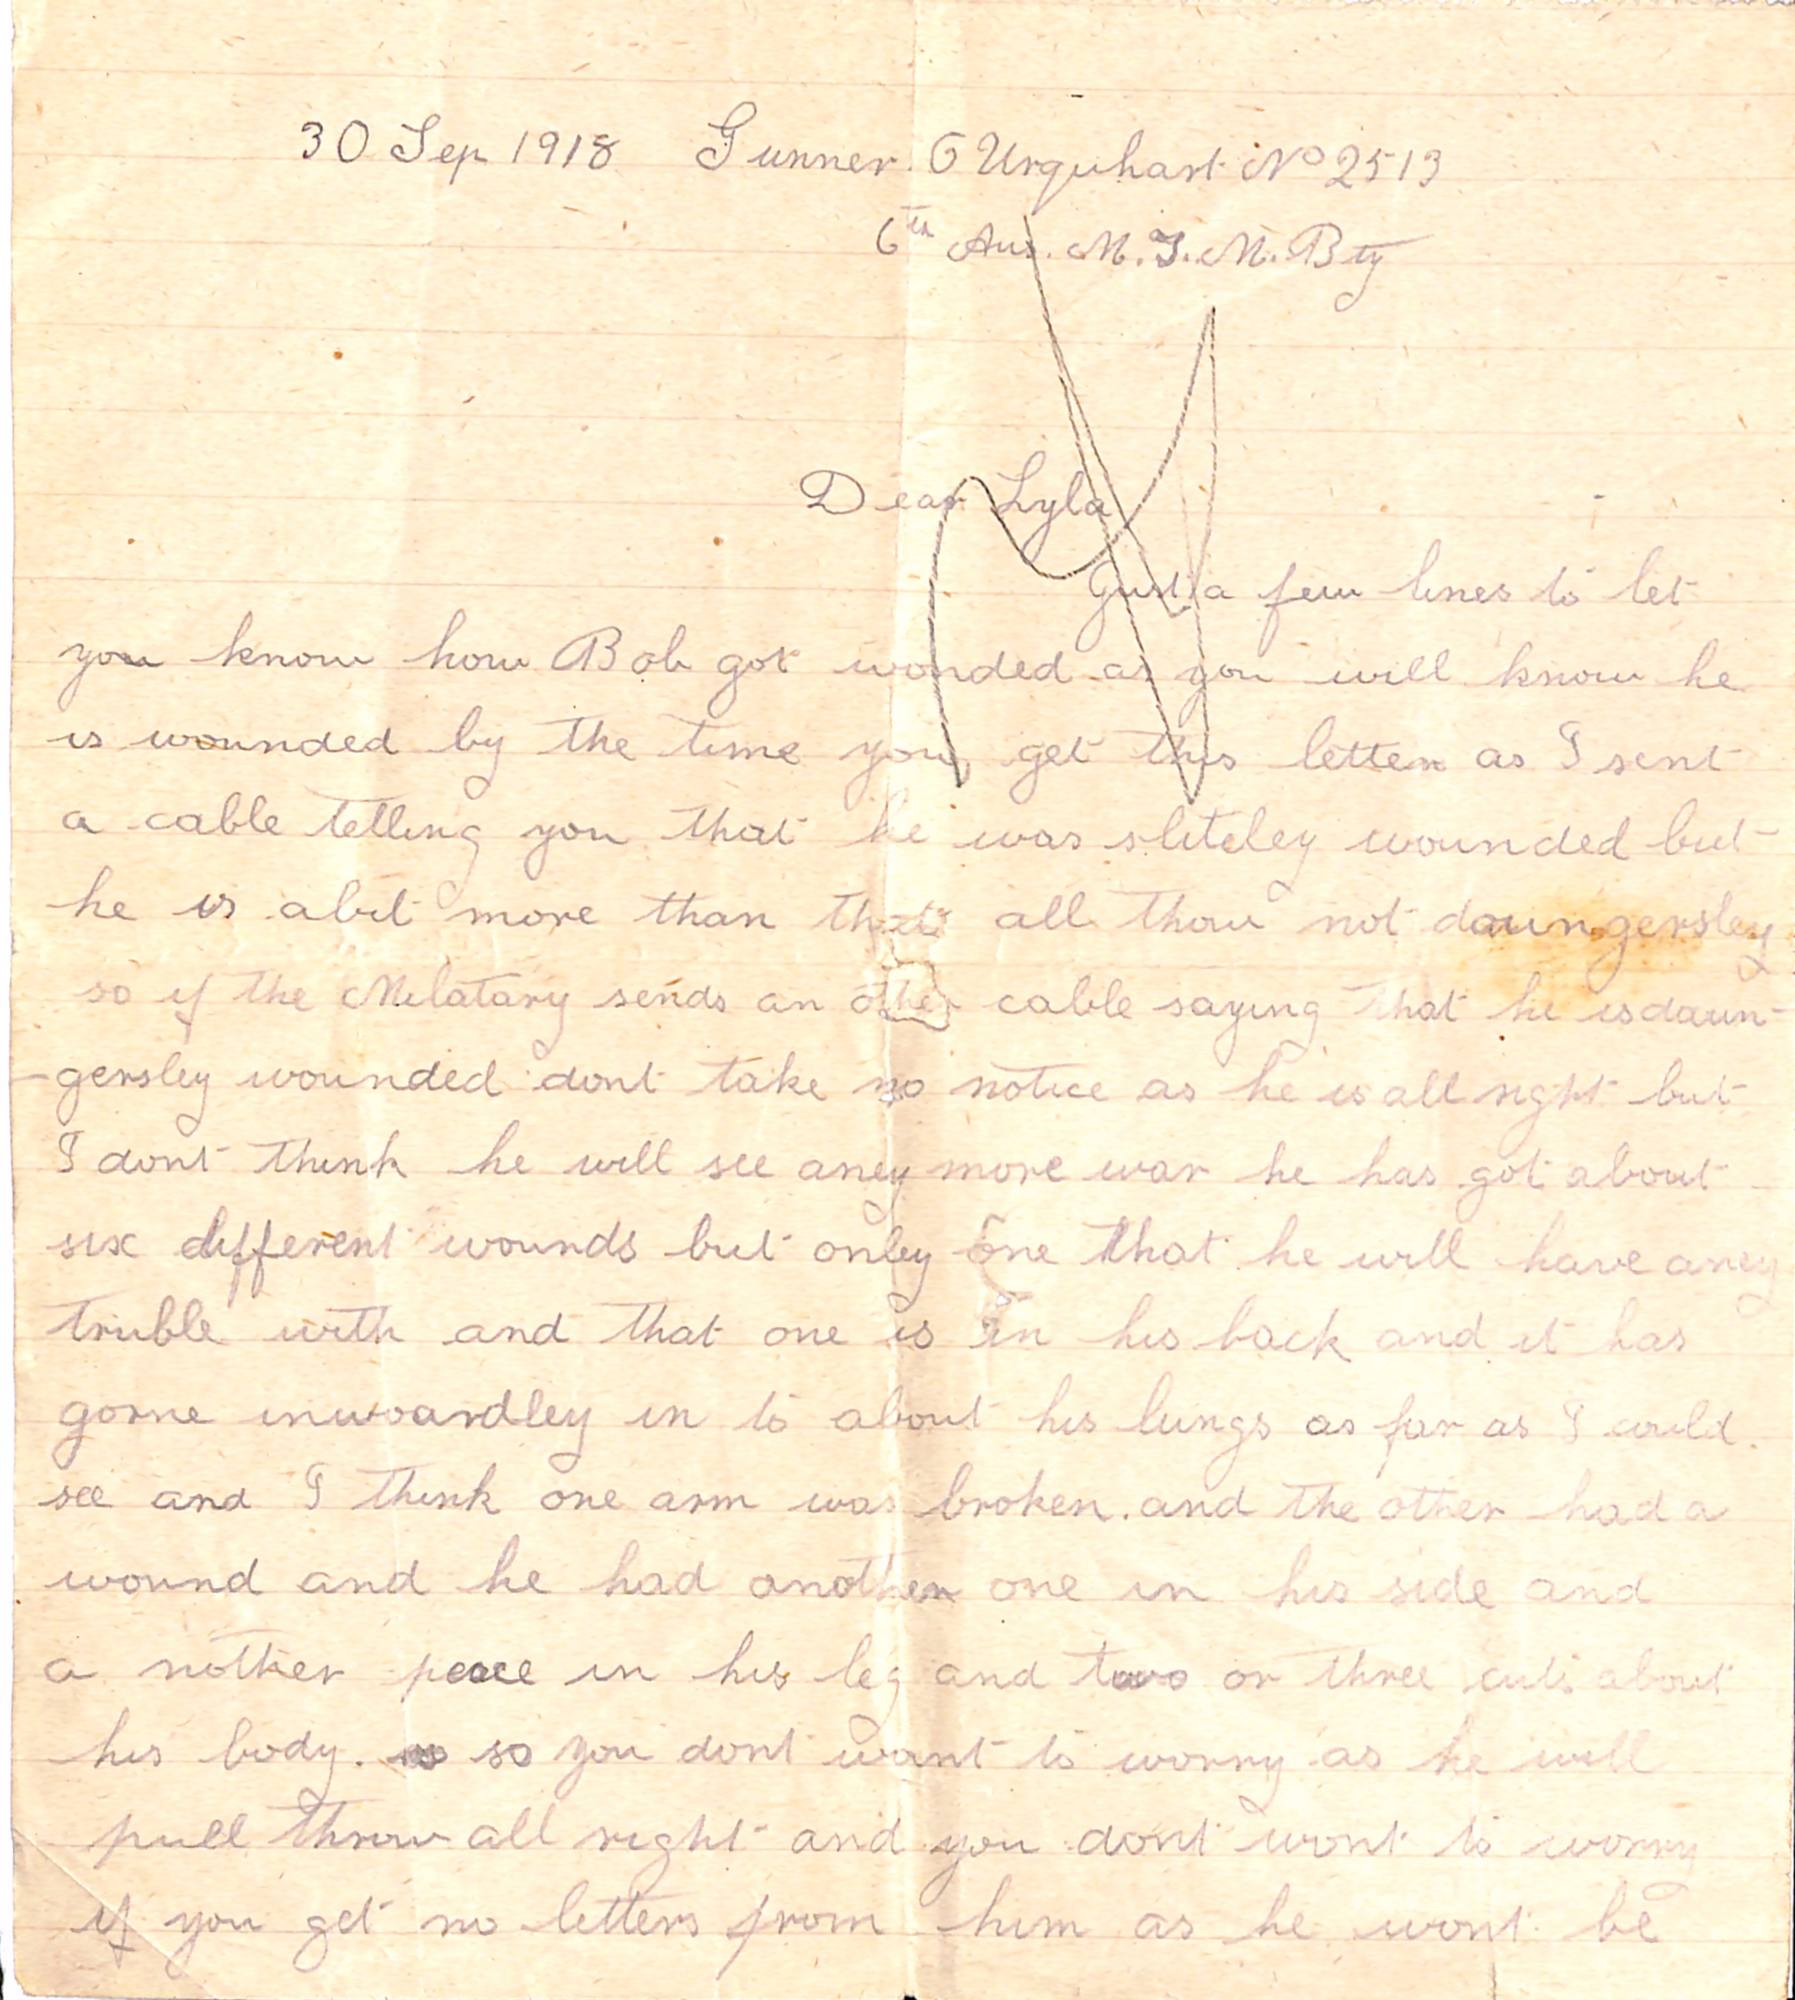 30 Sep 1918 Gunner. G Urquhart No 2513
6th Aus. M.T.M. Bty
Dear Lyla
Just a few lines to let
you know how Bob got wonded as you will know he
is wounded by the time you get this letter as I sent
a cable telling you that he was sliteley wounded but
he is abit more than that all thow not daungersley
so if the Melatary sends an other cable saying that he is daun-
-gersley wounded dont take no notice as he is all right but
I dont think he will see aney more war he has got about
six different wounds but onley one that he will have aney
truble with and that one is in his back and it has
gorne inwoardley in to about his lungs as far as I could
see and I think one arm was broken. and the other had a
wound and he had another one in his side and
a nother peace in his leg and two or three cuts about
his body. so you dont want to worry as he will
pull throw all right and you dont wont to worry
if you get no letters from him as he wont be